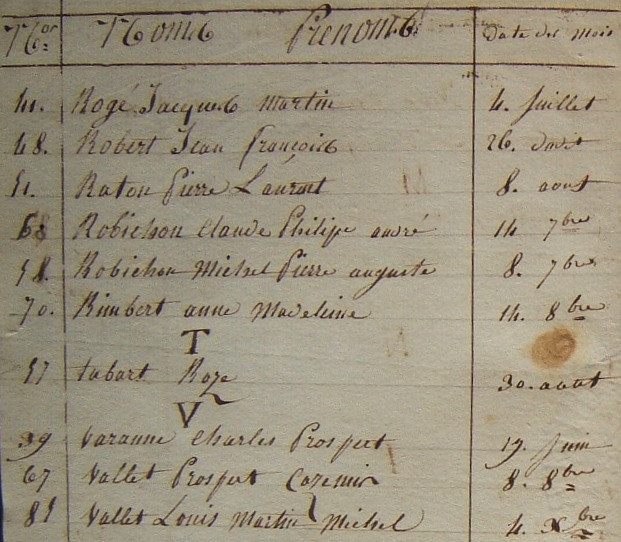 Nos Noms Prenoms Date des mois
41. Rogé Jacques Martin 4. Juillet
48. Robert Jean françois 26. dout
51. Raton Pierre Laurent 8. aout
68 Robichon Claude Philipe andré 14 7bre
58. Robichon Michel Pierre auguste 8. 7bre
70. Rimbert anne Madeleine 14. 8bre
T
57 tabart Roze 30. aout
V
39 Varanne Charles Prospert 19. Juin
67 Vallet Prospert Cazemir 8. 8bre
85 Vallet Louis Martin Michel 4. Xbre